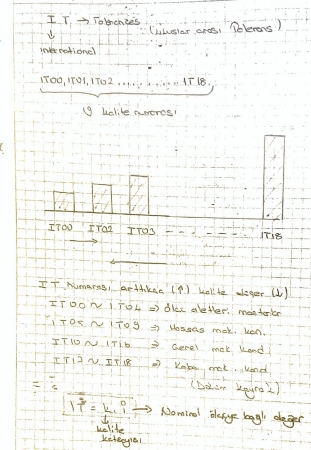 I T → Tolerances (Uluslar arası Tolerans)
↓
international
IT00, IT01, IT02 ............ IT18
19 kalite numarası
IT00 IT02 IT03 - - - - - - - IT18
IT Numarası arttıkça (↑) kalite değer (↓)
IT00 ~ IT04 => Ölçü aletleri, masterlar
IT05 ~ IT09 => Hassas mak. kon.
IT10 ~ IT16 => Genel mak. kond.
IT12 ~ IT18 => Kaba mak. kond.
(Döküm Kaynak)
IT = k.i → Nominal ölçüye bağlı değer
↓
kalite
katsayısı